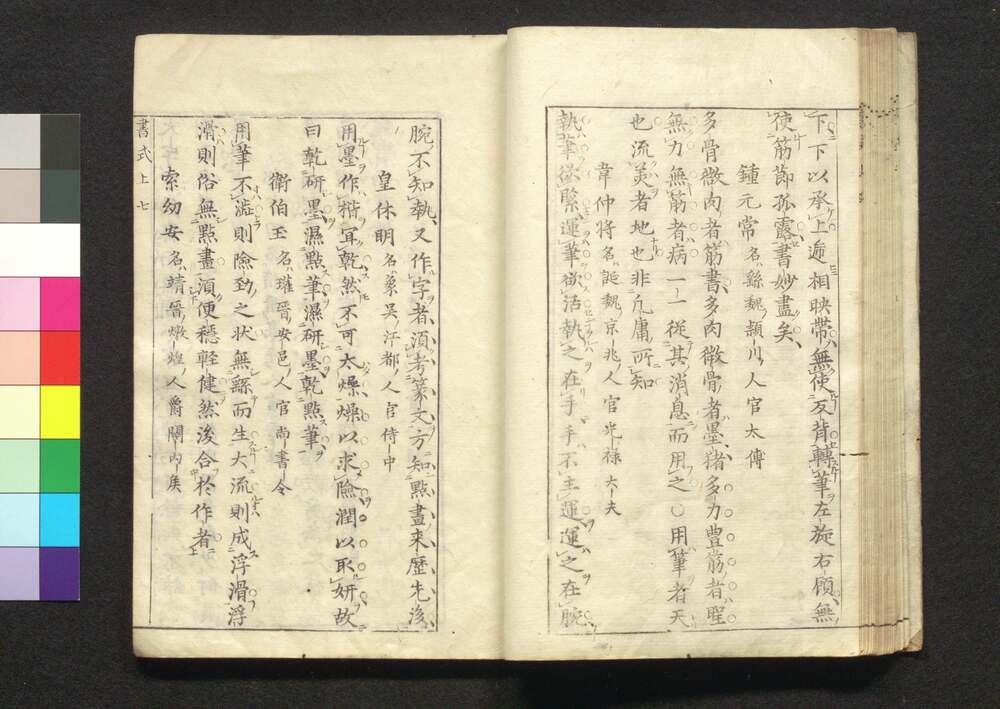 下下以承上逓相映帶無使反背轉筆左旋右顧無
使筋節孤露書妙盡矣
鍾元常名繇魏穎川人官太傅
多骨微肉者筋書多肉微骨者墨猪多力豊筋者聖
無力無筋者病一一從其消息而用之〇用筆者天
也流美者地也非凡庸所知
韋仲将名誕魏京兆人官光禄大夫
執筆欲緊運筆欲活執之在手手不主運運之在腕
腕不知執又作字者須考篆文方知點畫来歷先後
皇休明名象呉江都人官侍中
用墨作楷冝乾然不可太燥燥以求險潤以取妍故
曰乾研墨濕點筆濕研墨乾點筆
衛伯玉名瓘晋安邑人官尚書令
用筆不澁則險勁之状無繇而生大流則成浮滑浮
滑則俗無點畫須便穩輕健然後合於作者
索幼安名靖晋燉煌人爵関内矦
書式上 七